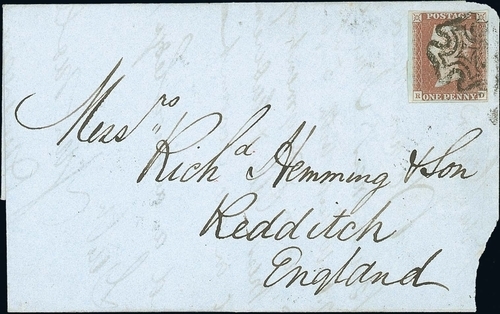 POSTAGE
ONE PENNY
Mess rs
Rich d Hemming & Son
Redditch
England